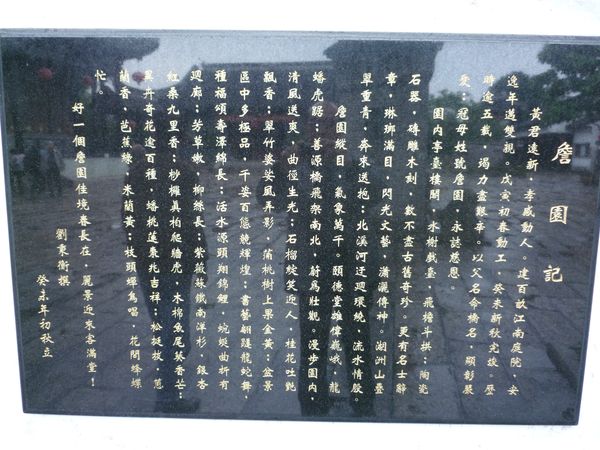 詹園記
黃君遠新,孝感動人。建百畝江南庭院,安
逸年邁雙親。戊寅初春動工,癸未新秋完竣。歷
時逾五載,竭力盡艱辛。以父名命橋名,顯彰嚴
愛,冠母姓號詹園,永誌慈恩。
園內亭臺樓閣,水榭戲臺,飛檐斗拱;陶瓷
石器,磚雕木刻,數不盡古舊奇珍。更有名士辭
章,琳瑯滿目,閃光文藝,瀟灑傳神。湖洲山疊
翠重青,奔來送抱;北溪河迂迴環繞,流水情殷。
詹園縱目,氣象萬千。頤德堂雄偉巍峨,龍
蟠虎踞;善源橋飛架南北,蔚為壯觀。漫步園內,
清風送爽。曲徑生光,石榴綻笑近人,桂花吐艷
飄香;翠竹婆娑風弄影,蒲桃樹上果金黃;盆景
區中多極品,千姿百態競輝煌;書藝翩躚龍蛇舞,
種福頌壽澤綿長;活水源頭翔錦鯉,蜿蜒曲折有
迴廊;芳草嫩,柳絲長;紫薇蘇鐵南洋杉,銀杏
紅桑九里香;桫欏真柏爬牆虎,木棉魚尾葵香芒;
異卉奇花逾百種,蟠桃蓮霧兆吉祥;松挺拔,蔥
蘭香,芭蕉綠,米蘭黃;枝頭蟬鳥唱,花間蜂蝶
忙。
好一個詹園佳境春長在,麗景迎來客滿堂!
劉秉衡撰
癸未年初秋立